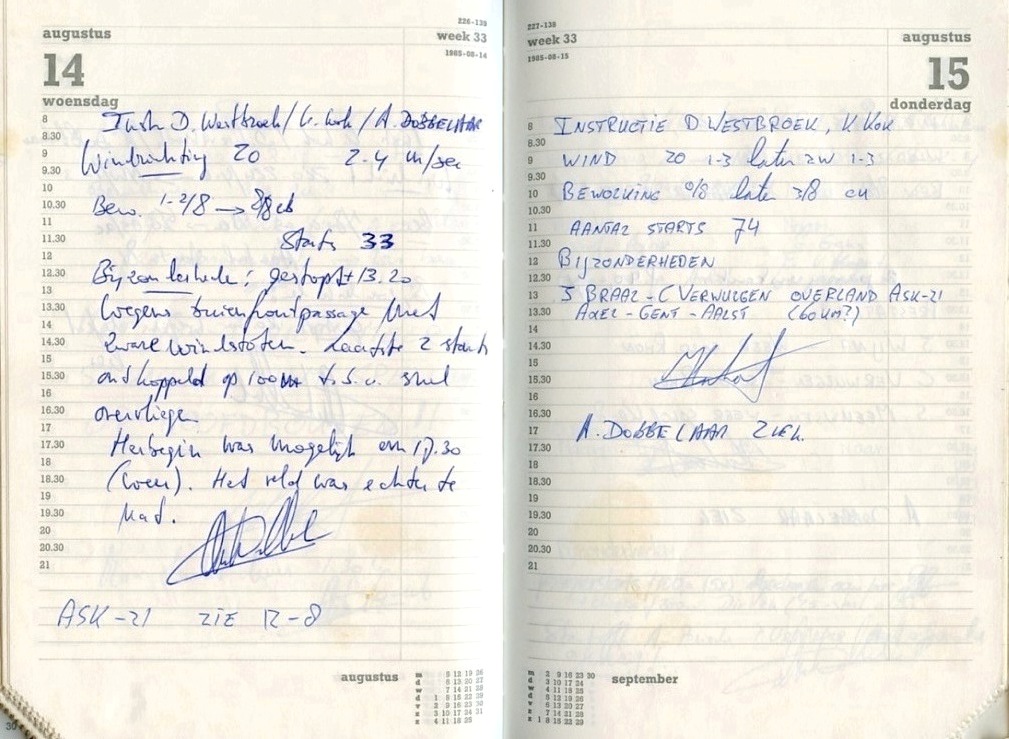 226-139
augustus
week 33
1985-08-14
14
woensdag
8 Instr D. Westbroek / V. Kok / A. DOBBELAAR
8.30
9 Windrichting ZO 2-4 m/sec
9.30
10
10.30 Bew. 1-2/8 → 8/8 cb
11
11.30 Starts 33
12
12.30 Bijzonderhede: gestopt ± 13.20
13
13.30 Wegens buienfrontpassage met
14
14.30 zware windstoten. Laatste 2 starts
15
15.30 ontkoppeld op 100m t.b.v. snel
16
16.30 overvliegen.
17
17.30 Herbegin was mogelijk om 17.30
18
18.30 (weer). Het veld was echter te
19
19.30 nat.
20
20.30
21
ASK-21 ZIE 12-8
augustus
m 5 12 19 26
d 6 13 20 27
w 7 14 21 28
d 1 8 15 22 29
v 2 9 16 23 30
z 3 10 17 24 31
z 4 11 18 25
227-138
week 33
1985-08-15
augustus
15
donderdag
8 INSTRUCTIE D WESTBROEK, V. KOK
8.30
9 WIND ZO 1-3 later ZW 1-3
9.30
10 BEWOLKING 0/8 later 3/8 cu
10.30
11 AANTAL STARTS 74
11.30
12 BIJZONDERHEDEN
12.30
13 J BRAAL - C VERWIJGEN OVERLAND ASK-21
13.30 AXEL - GENT - AALST (60 KM?)
14
14.30
15
15.30
16
16.30
17 A. DOBBELAAR ZIEK.
17.30
18
18.30
19
19.30
20
20.30
21
m 2 9 16 23 30
d 3 10 17 24
w 4 11 18 25
d 5 12 19 26
v 6 13 20 27
z 7 14 21 28
z 1 8 15 22 29
september